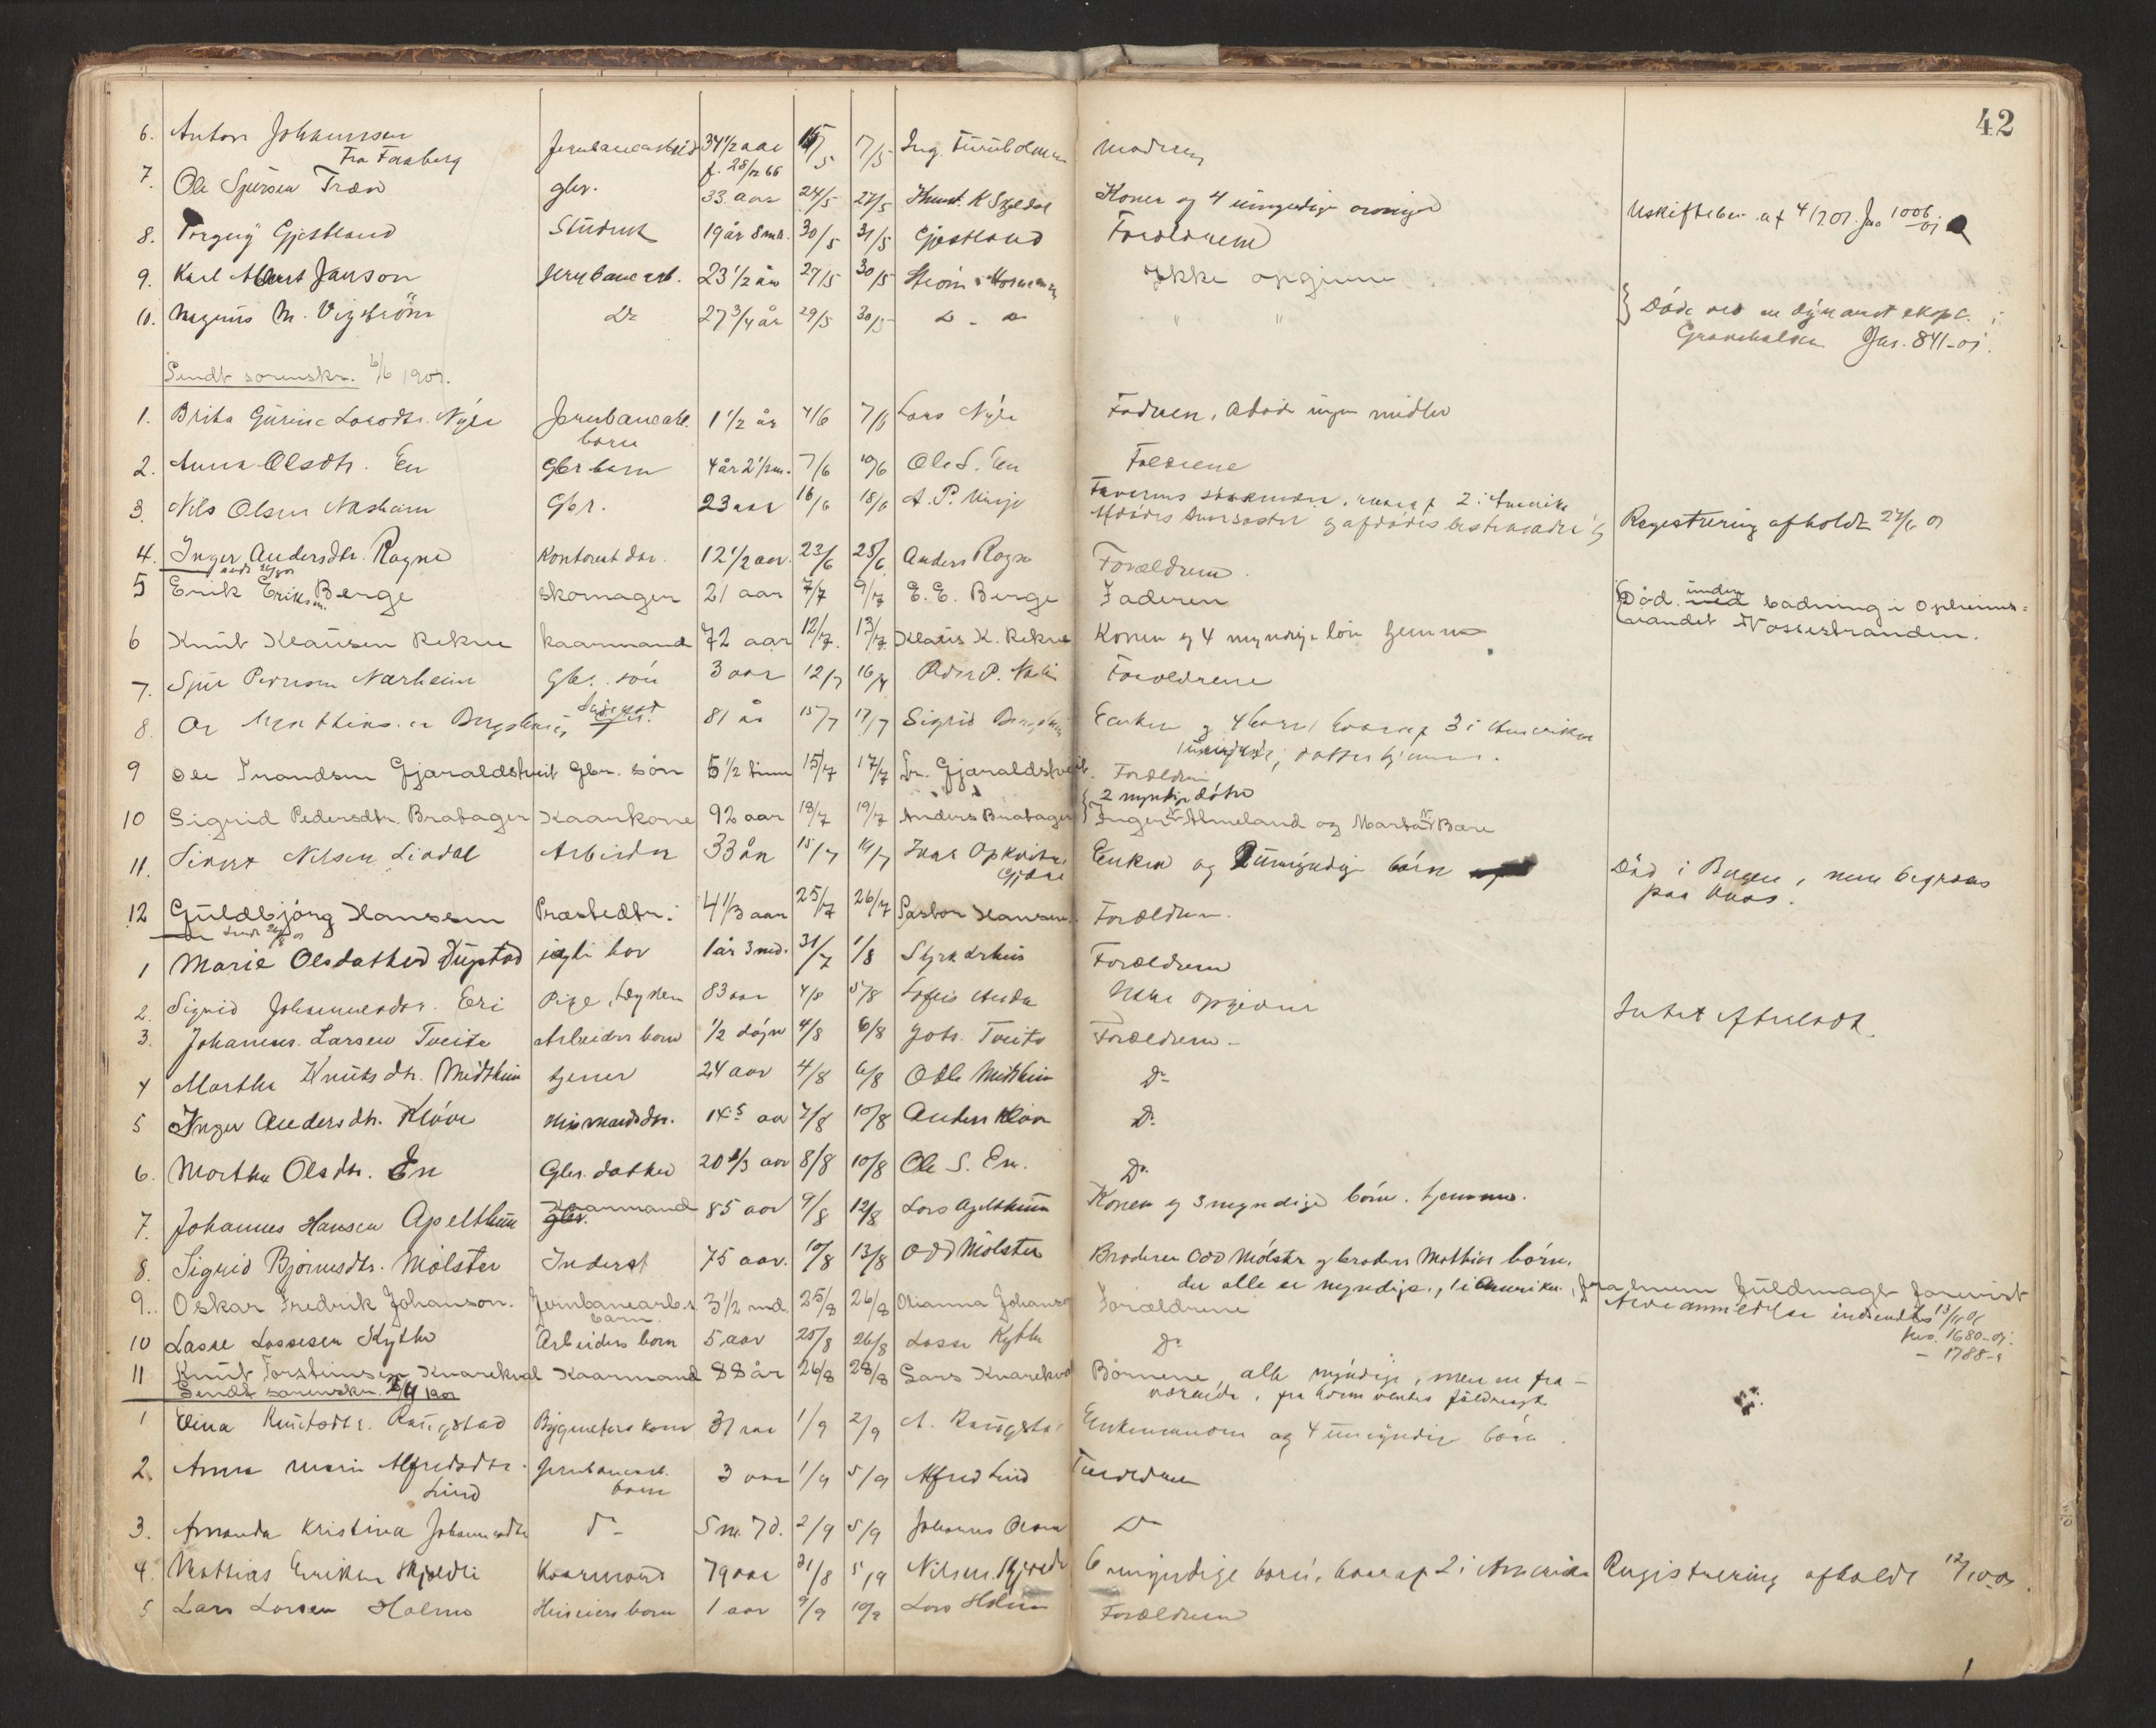 42
6. Anton Johannsen Jernbanearbeid 34 1/2 aar 15/5 17/5 Ing. Furuholmen Modren
Fra Faaberg f. 28/12 66
7. Ole Sjursen Træn gbr. 33 aar 24/5 27/5 Knud K Konen og 4 umyndige Uskiftebev. af 4/7 01 Jno 1006/01
8. Torguy Gjestland Student 19 år 8 md. 30/5 31/5 Gjestland Forældrene
9. Karl Albert Janson Jernbanearb. 23 1/2 år 27/5 30/5 Strøm & Hornemann Ikke opgivne
10. Magnus M. Vigström Do 27 3/4 år 29/5 30/5 Do - Do " " } Døde ved en dynamit expl. i
Gravehalsen Jno. 841-01.
Sendt sorenskr. 6/6 1901.
1. Brita Gurine Larsdtr. Nyre Jernbanearb. 1 1/2 år 4/6 7/6 Lars Nyre Fadren, ingen midler
barn
2. Anna Olsdtr. En Gbr barn 4 år 2 1/2 m. 7/6 10/6 Ole S. En Foældrene
3. Nils Olsen Nasheim Gbr. 23 aar 16/6 18/6 A. P. 2 i Amerika
Afdødes og afdødes Registrering afholdt 27/6 01
4. Inger Andersdtr. Rogne Kontoristdtr. 12 1/2 aar 23/6 25/6 Anders Rogne Forældrene.
5 Erik Eriksen Berge Skomager 21 aar 7/7 9/7 E. E. Berge Faderen Død under ved badning i Opheims-
vandet Vossestranden.
6 Knut Klausen Rekve kaarmand 72 aar 12/7 13/7 Klaus K. Rekve Konen og 4 myndige hjemme
7. Sjur Persen Nærheim Gbr. søn 3 aar 12/7 16/7 Peder P. Forældrene
8. 81 år 15/7 17/7 Sigrid Enken og 4 børn, hvoraf 3 i Amerika
datter hjemme.
9 Ole Trondsen Gjaraldstveit Gbr. søn 5 1/2 time 15/7 17/7 Tr. Gjaraldstveit. Forældrene
2 myndige døtre
10 Sigrid Pedersdtr. Bratager Kaarkone 92 aar 18/7 19/7 Anders Bratager { Inger Almeland og Marta Bære
11. Sivert Nilsen Lindal Arbeider 33 år 15/7 19/7 Ivar Opkvitne Enken og 2 umyndige børn Død i Bergen, men begraves
Gjøre paa Voss.
12 Guldbjørg Hansen Præstedtr. 4 1/3 aar 25/7 26/7 Pastor Hansen. Forældren.
1 Marie Olsdatter 1 år 3 md. 31/7 1/8 Forældrene
2. Sigrid Johannesdtr. Eri Pige, 83 aar 4/8 5/8 Ikke opgivne Intet Efterladt.
3. Johannes Larsen Tveite Arbeiders barn 1/2 døgn 4/8 6/8 Joh. Tveite Forældrene
4 Martha Knutsdtr. Midtheim tjener 24 aar 4/8 6/8 Odd Midtheim Do
5 Inger Andersdtr. Kløve Husmandsdtr. 14 5 aar 7/8 10/8 Anders Kløve Do.
6. Martha Olsdtr. En Gbr. datter 20 1/3 aar 8/8 10/8 Ole S. En. Do
7. Johannes Hansen Apeltun Kaarmand gbr. 85 aar 9/8 12/8 Lars Apeltun Konen og 3 myndige børn. hjemme.
8. Sigrid Bjørnsdtr. Mølster Inderst 75 aar. 10/8 13/8 Odd Mølster Broderen Odd Mølster og broderen Mathias børn,
der alle er myndige, 1 i Amerika, fra hvem fuldmagt
9. Oskar Fredrik Johanson. Jernbanearb.s 3 1/2 md. 25/8 26/8 Olianna Johanson Forældrene indsendtes 13/11 01
barn Jno. 1680-01.
10 Lasse Lassesen Kytte Arbeiders barn 5 aar 25/8 26/8 Lasse Kytte Do - 1788-
11 Knut Torsteinsen Kvarekval Kaarmand 88 år 26/8 28/8 Lars Kvarekval Børnene, alle myndige, men en fra-
Sendt sorenskr. 1901 værende, fra hvem ventes fuldmagt.
1 Elina Knutsdtr. Raugstad Bygmesters kone 31 aar 1/9 2/9 A. Raugstad Enkemanden og 4 umyndige børn.
2. Anna Marie Alfredsdtr. Jernbanearb. 3 aar 1/9 5/9 Alfred Lind Forældrene
Lind barn
3. Amanda Kristina Johannesdtr do 5 m. 7 d. 2/9 5/9 Johannes Do
4. Mathias Eriksen Skjeldli Kaarmand 79 aar 31/8 5/9 6 myndige børn, hvoraf 2 i Amerika Registrering afholdt 12/10 01.
5 Lars Larsen Holme barn 1 aar 9/9 10/9 Lars Holme Forældrene